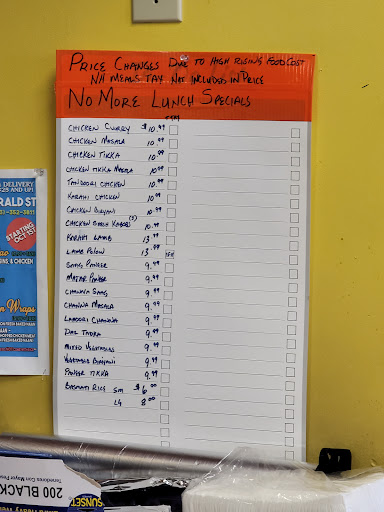 PRICE CHANGES DUE TO HIGH RISING FOOD COST
NH MEALS TAX NOT INCLUDED IN PRICE
NO MORE LUNCH SPECIALS
CHICKEN CURRY $10.99
CHICKEN MASALA 10.99
CHICKEN TIKKA 10.99
CHICKEN TIKKA MASALA 10.99
TANDOORI CHICKEN 10.99
KARAHI CHICKEN 10.99
CHICKEN BIRYANI 10.99
CHICKEN SEEKH KABOBS 10.99
KARAHI LAMB 13.99
LAMB PULOW 13.99
SAAG PANEER 9.99
MATAR PANEER 9.99
CHANNA SAAG 9.99
CHANNA MASALA 9.99
LAHORI CHANNA 9.99
DAL TADKA 9.99
MIXED VEGETABLES 9.99
VEGETABLE BIRYANI 9.99
PANEER TIKKA 9.99
BASMATI RICE SM $6.00
LG 8.00
DELIVERY
$25 AND UP!
RALD ST
352-3811
STARTING
OCT 15!
& CHICKEN
n Wraps
200 BLACK
SUNSET